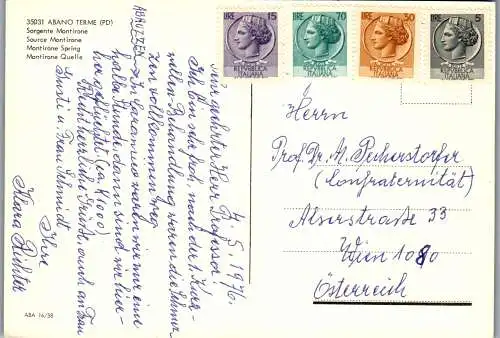 35031 ABANO TERME (PD)
Sorgente Montirone
Source Montirone
Montirone Spring
Montirone Quelle
LIRE 15
REPUBBLICA
ITALIANA
LIRE 70
REPUBBLICA
ITALIANA
LIRE 50
REPUBBLICA
ITALIANA
LIRE 5
REPUBBLICA
ITALIANA
5. 1976.
Sehr geehrter Herr Professor!
Ich bin sehr froh, nach der 1. Kura-
Behandlung waren die Schmer
zen vollkommen weg
In waren wir nur eine
halbe Stunde, dann sind wir hier-
her geflüchtet (ca. 1000)
Recht herzliche Grüße, auch an Frau
Susi u. Frau Schmidt
Ihre
Klara Richter
Prof. Dr. M. Pecherstorfer
(Confraternität)
Alserstraße 33
Wien 1080
Österreich
ABA 16/38